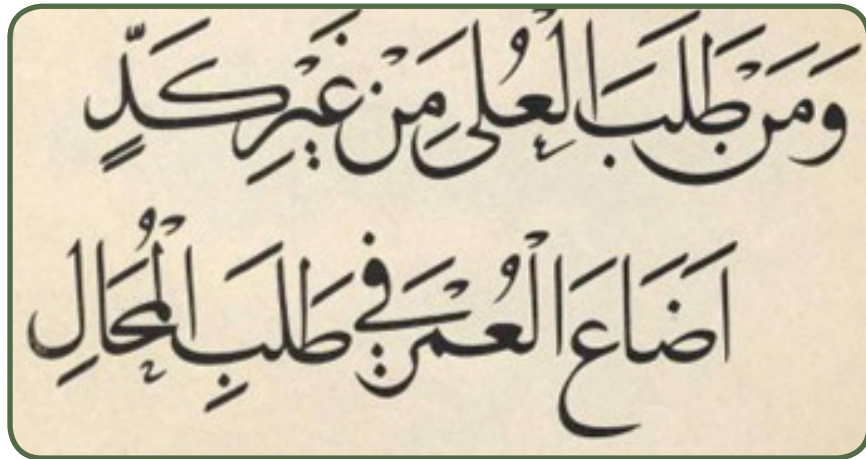 وَمَنْ طَلَبَ الْعُلٰى مِنْ غَيْرِ كَدٍّ
اَضَاعَ الْعُمْرَ فِي طَلَبِ الْمُحَالِ